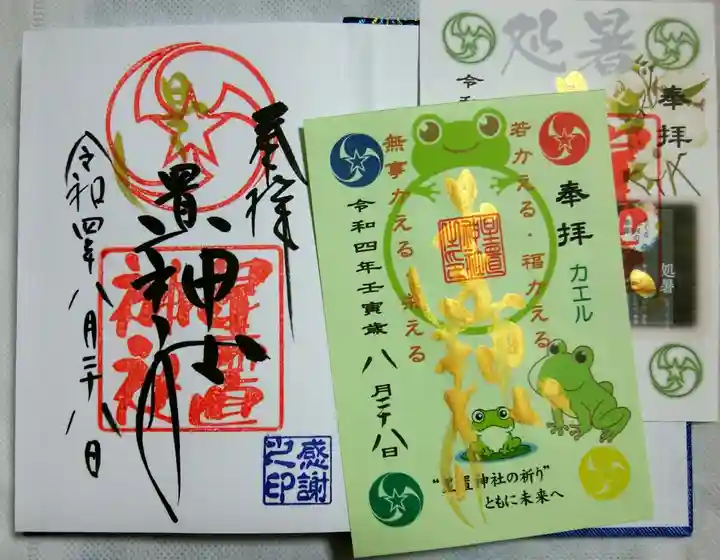 奉拝
星置神社
令和四年八月二十八日
感謝
之印
奉拝 カエル
若かえる・福かえる
無事かえる
令和四年壬寅歳
八月二十八日
星置神社
"星置神社の祈り"
ともに未来へ
処暑
奉拝
処暑